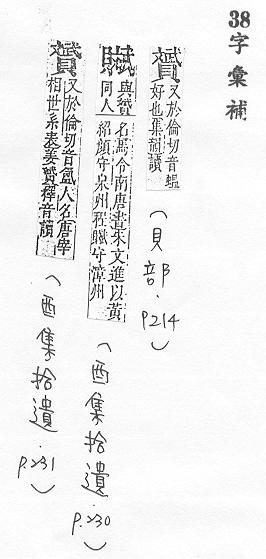 38字彙補
贇 又於倫切音蝹好也集韻讀
（貝部．P.214）
與贇同人名馬令南唐書朱文進以黃紹頗守泉州程贇守漳州
（酉集拾遺．P.230）
贇 又於倫切音氳人名唐宰相世系表姜贇釋音韻
（酉集拾遺．P.231）